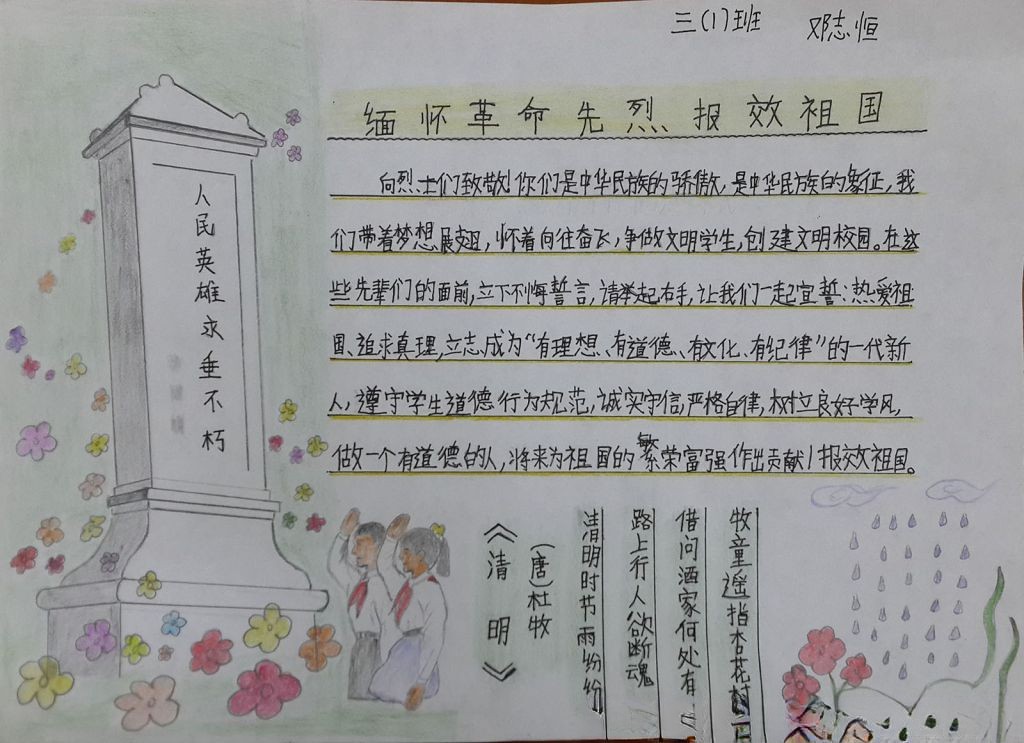 三(1)班 邓志恒
缅怀革命先烈 报效祖国
向烈士们致敬!你们是中华民族的骄傲,是中华民族的象征,我
们带着梦想展翅,怀着向往奋飞,争做文明学生,创建文明校园。在这
些先辈们的面前,立下不悔誓言,请举起右手,让我们一起宣誓:热爱祖
国、追求真理,立志成为“有理想、有道德、有文化、有纪律”的一代新
人,遵守学生道德行为规范,诚实守信,严格自律,树立良好学风,
做一个有道德的人,将来为祖国的繁荣富强作出贡献!报效祖国。
人民英雄永垂不朽
《清明》
(唐)杜牧
清明时节雨纷纷
路上行人欲断魂
借问酒家何处有
牧童遥指杏花村